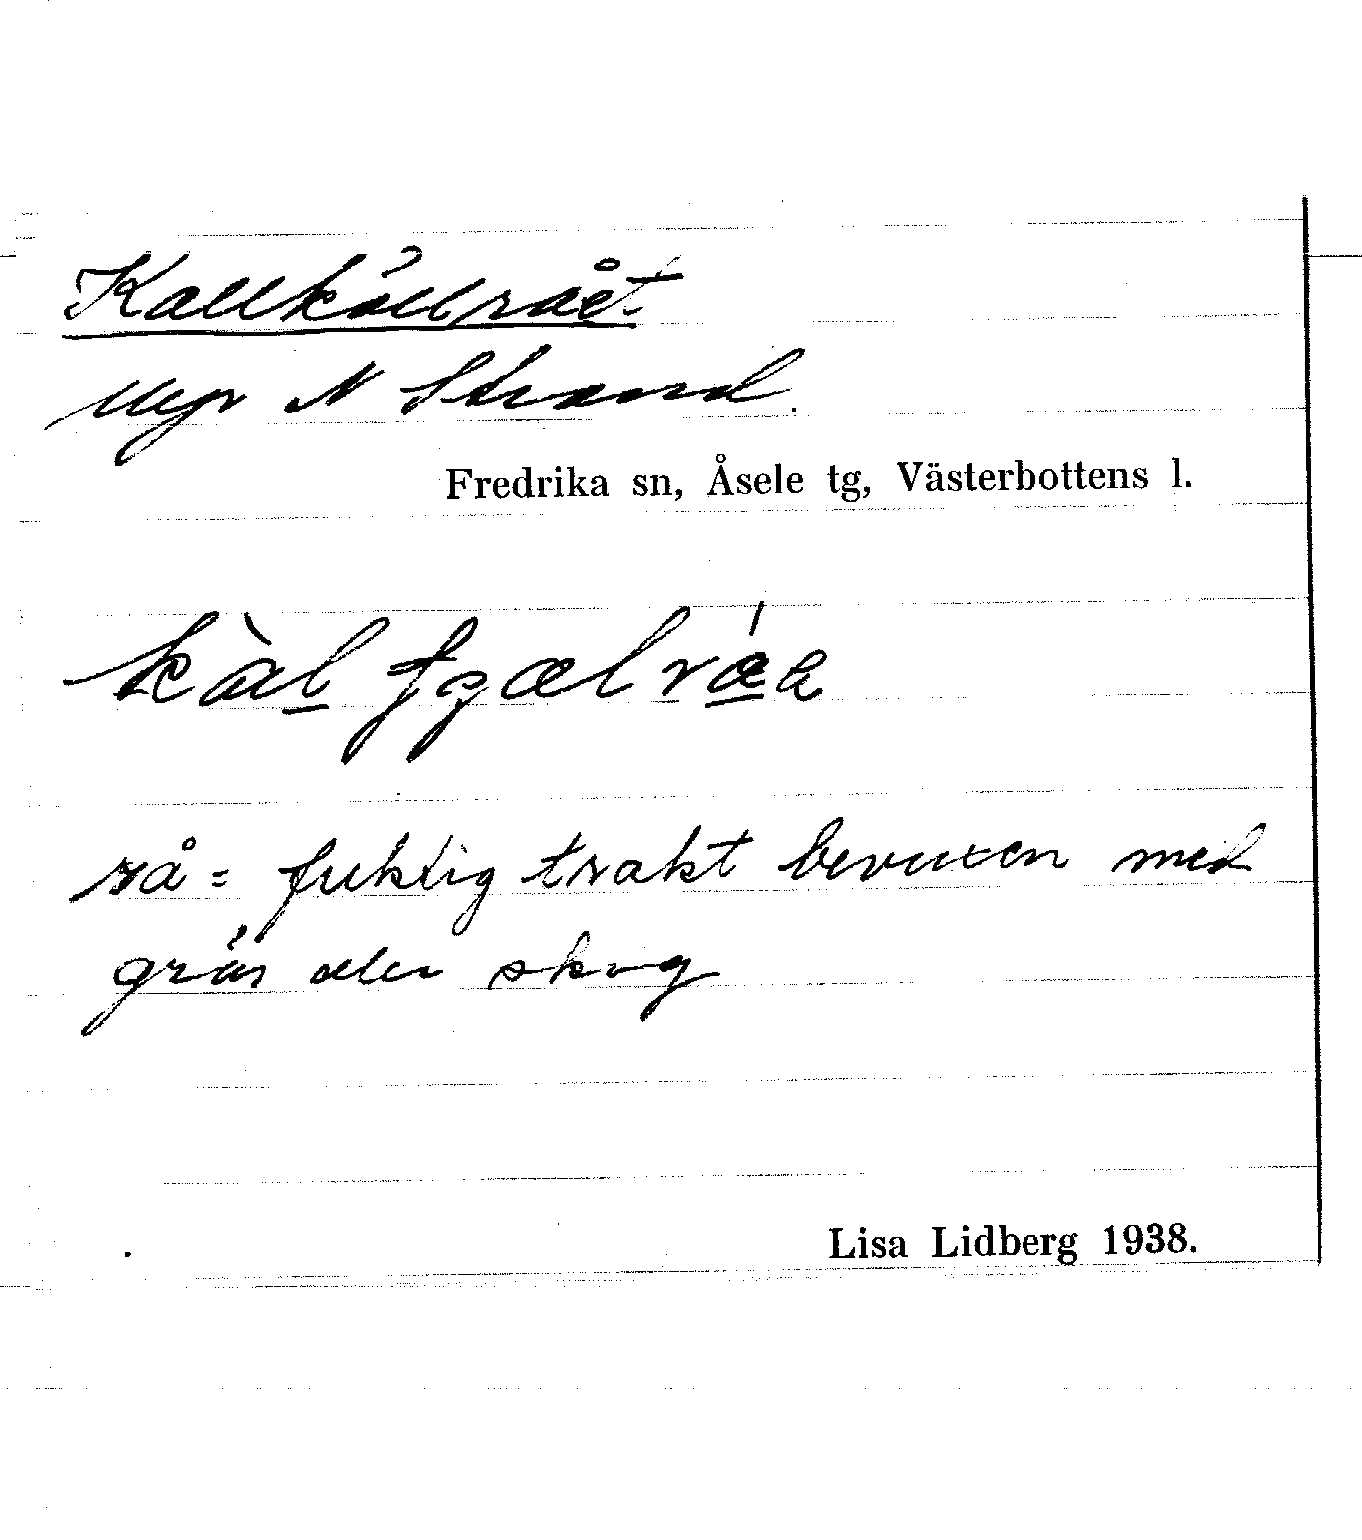 Kallkällrået
Myr N Strand.
Fredrika sn, Åsele tg, Västerbottens l.
rå = fuktig trakt bevuxen med
gräs eller skog
Lisa Lidberg 1938.